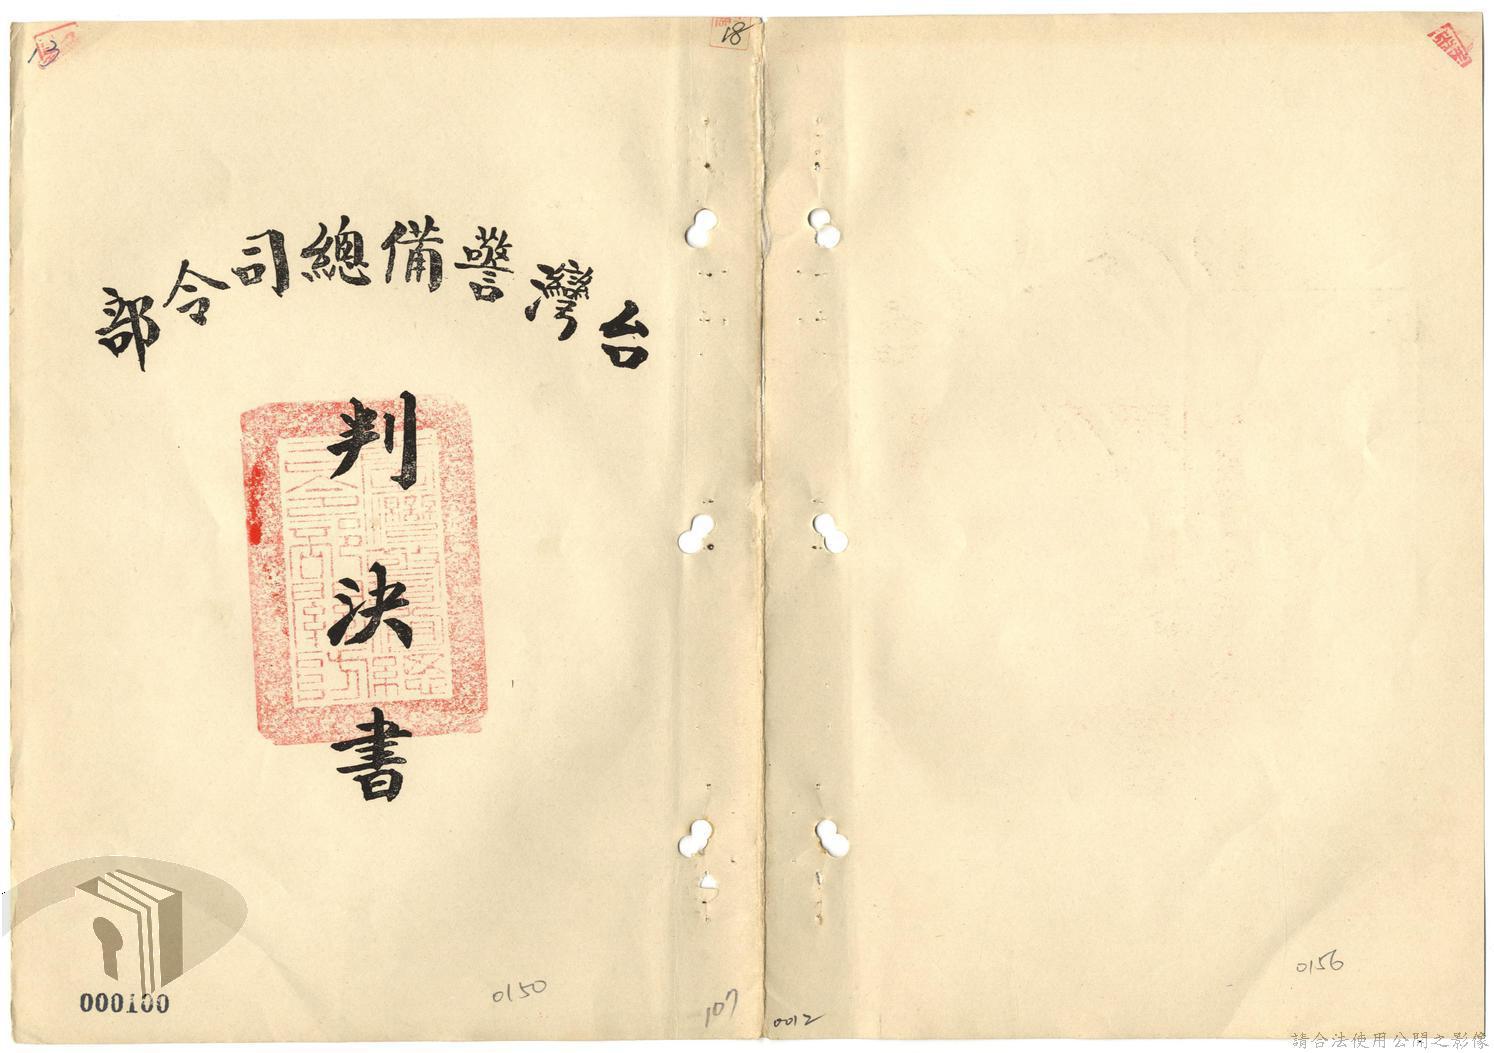 13
18
台灣警備總司令部
判決書
000100
0150
107
0012
0156
請合法使用公開之影像